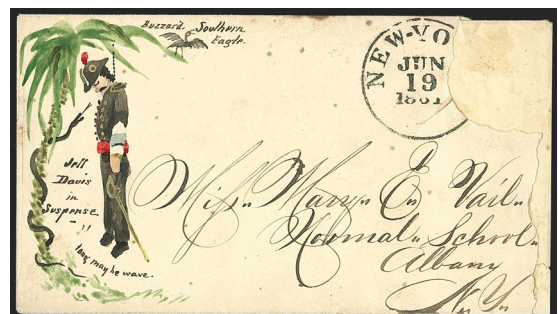 Buzzard. Southern
Eagle.
NEW-YO
JUN
19
1861
Jeff
Davis
in
Suspense
"
long may he wave.
Miss Mary E. Vail
Normal School
Albany
N.Y.